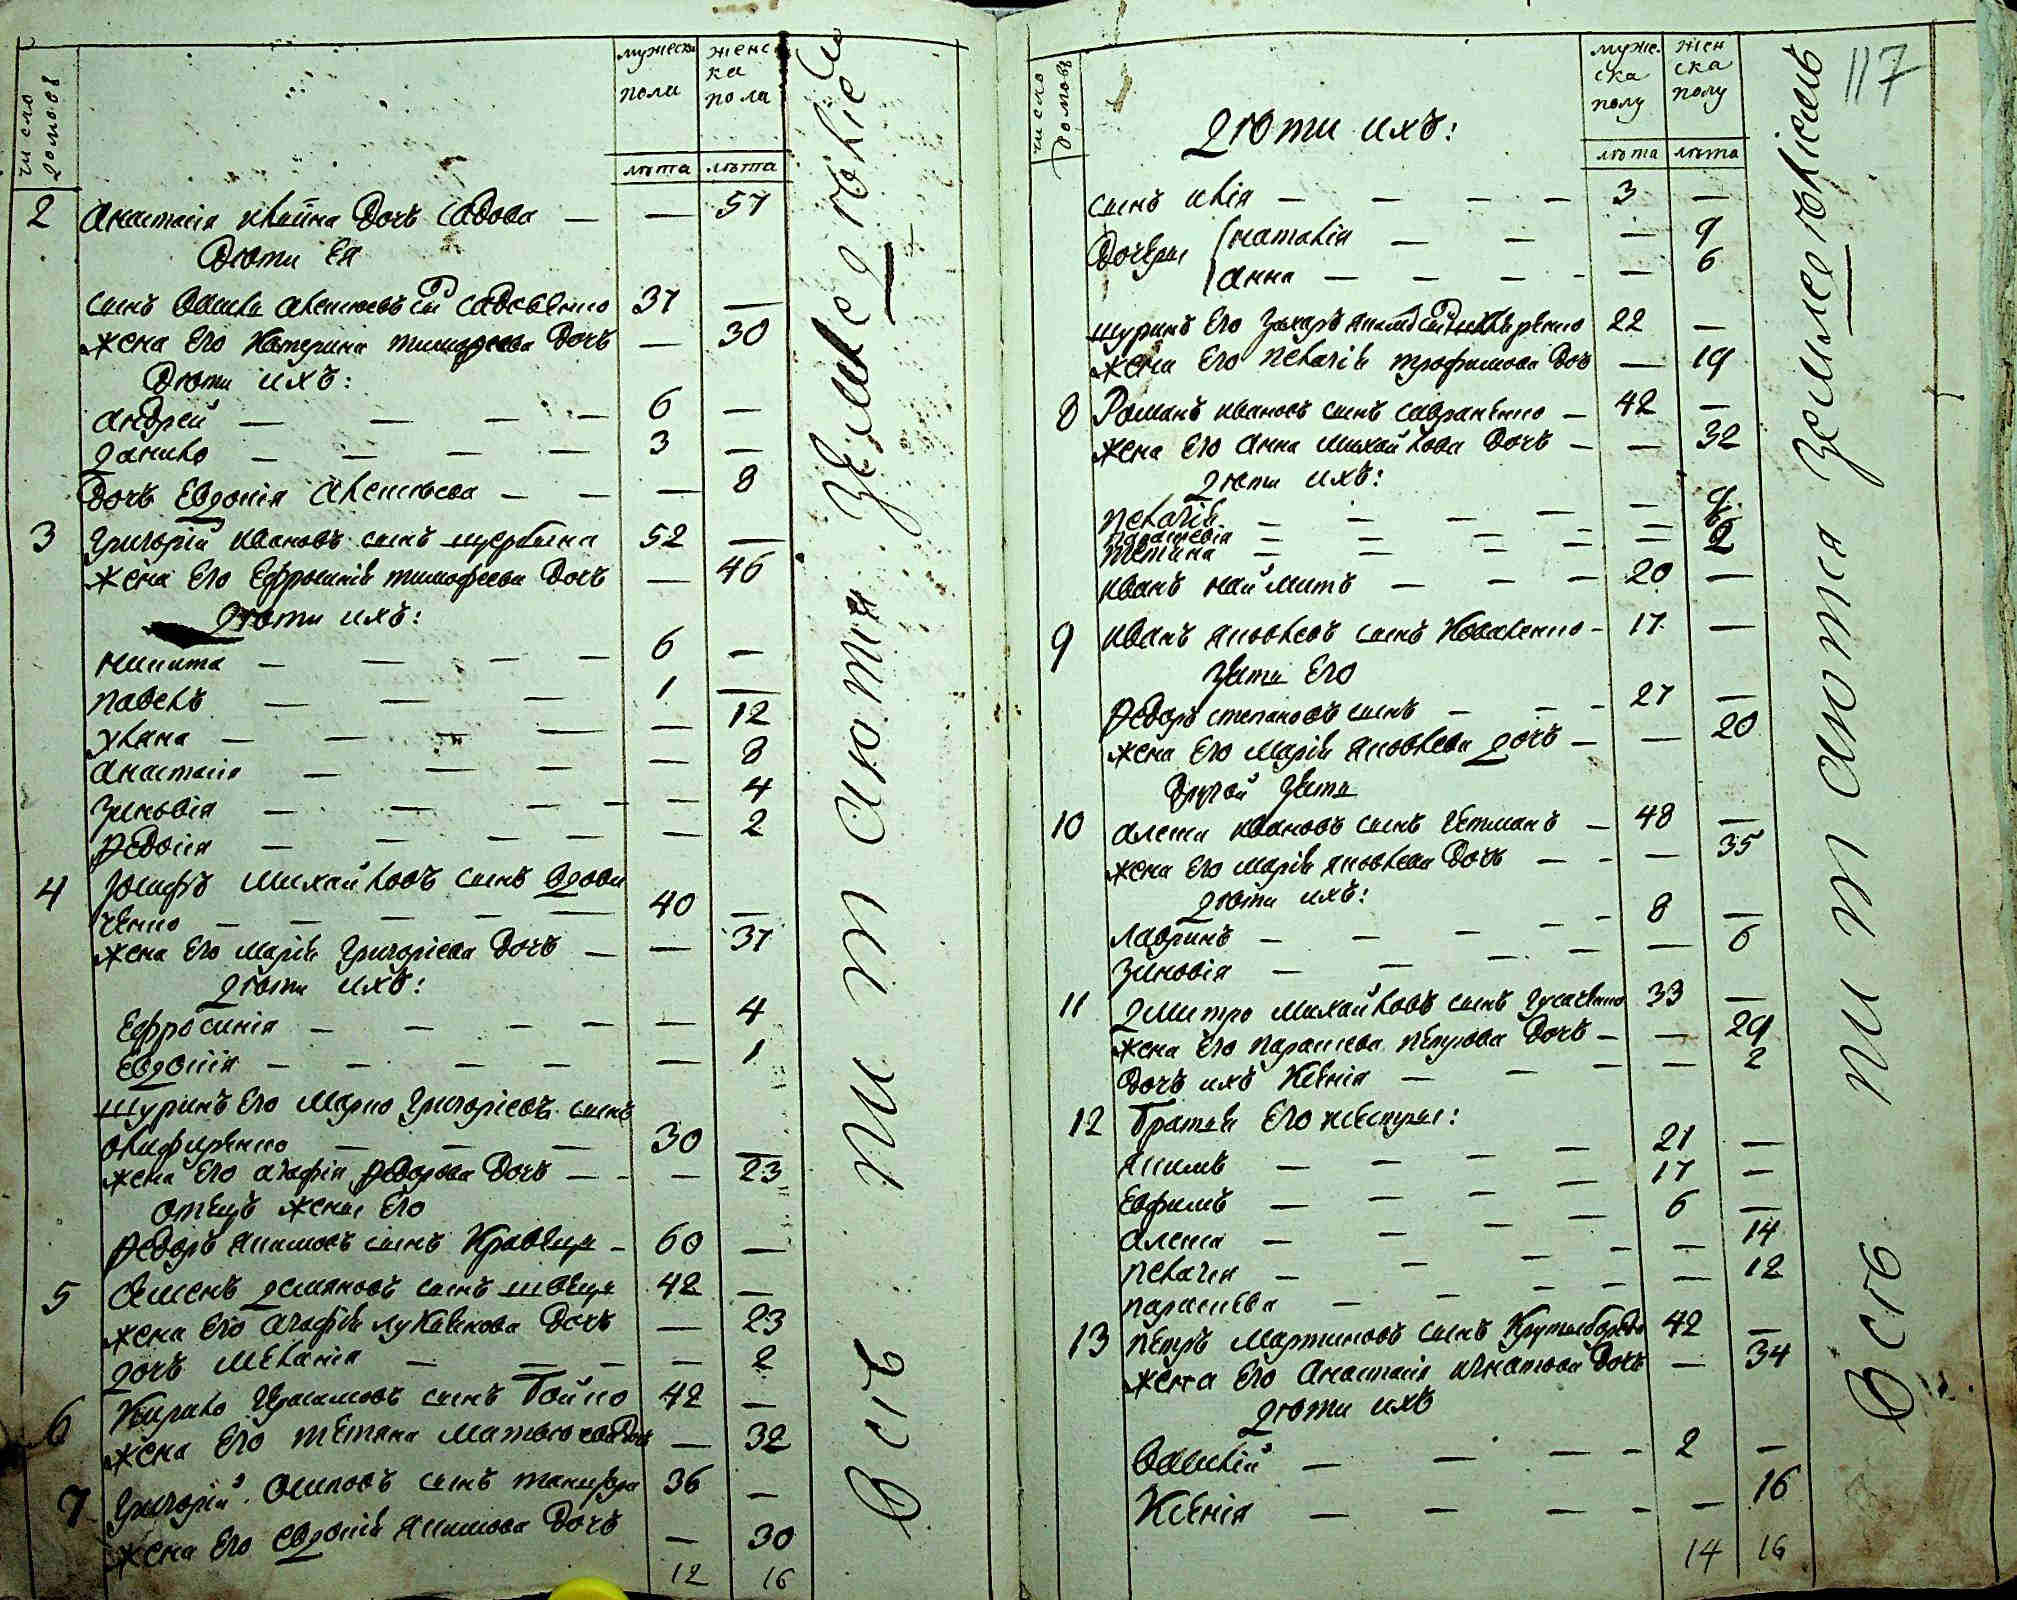 число домовъ
мужеска пола
женска пола
лѣта лѣта
2 Анастасія дочь Садова — — 57
Дѣти Ея
сынъ сынъ Садовенко 37 —
жена Его Катерина тимофеева Дочъ — 30
Дѣти ихъ:
андрей — — — — 6 —
данило — — — — 3 —
Дочъ Евдокія — — — 8
3 Григорій ивановъ сынъ щербина 52 —
жена Его Ефросинія тимофеева Дочъ — 46
дѣти ихъ:
никита — — — — 6 —
павелъ — — — 1 —
уляна — — — — 12
анастасія — — — — 8
зиновія — — — — — 4
Федосія — — — — — 2
4 Іосифъ михайловъ сынъ
ченко — — — — — 40 —
жена Его марія григоріева дочъ — — 37
дѣти ихъ:
Ефросинія — — — — — 4
Евдокія — — — — — 1
шуринъ Его марко григоріевъ сынъ
— — — 30 —
жена Его агафія Федорова Дочъ — — 23
отецъ жены Его
Федоръ сынъ Кравецъ — 60 —
5 Семенъ демяновъ сынъ швецъ 42 —
жена Его агафія Дочъ — 23
дочъ меланія — — — — 2
6 Кирило Герасимовъ сынъ Бойко 42 —
жена Его тетяна Дочъ — 32
7 Григорій Осиповъ сынъ 36 —
жена Его евдокія Дочъ — 30
12 16
всѣ питаются земледѣліемъ
117
число домовъ
дѣти ихъ:
мужеска полу
женска полу
лѣта лѣта
сынъ илія — — — — 3 —
Дочеры наталія — — — 9
анна — — — — — 6
шуринъ Его Захаръ 22 —
жена Его пелагія трофимова Дочъ — 19
8 Романъ ивановъ сынъ — 42 —
жена Его анна михайлова Дочъ — — 32
дѣти ихъ:
пелагія — — — — —
параскевія — — — — —
тетяна — — — — — 2
иванъ наймитъ — — — 20 —
9 иванъ яковлевъ сынъ Коваленко — 17 —
зяти Его
Федоръ степановъ сынъ — — — 27 —
жена Его марія яковлева дочъ — — 20
Другой зять
10 алекси ивановъ сынъ Гетманъ — 48 —
жена Его марія яковлева Дочъ — — — 35
дѣти ихъ:
лавринъ — — — — — 8 —
зиновія — — — — — 6
11 дмитро михайловъ сынъ 33 —
жена Его параскева петрова Дочъ — — 29
Дочъ ихъ Ксенія — — — — 2
12 Братья Его и сестры:
якимъ — — — — 21 —
Евфимъ — — — — 17 —
алексій — — — — 6 —
пелагия — — — — — 14
параскева — — — — — 12
13 Петръ мартиновъ сынъ 42 —
жена Его анастасія игнатова Дочъ — 34
дѣти ихъ
Василій — — — — 2 —
Ксенія — — — — — 16
14 16
всѣ питаются земледѣліемъ